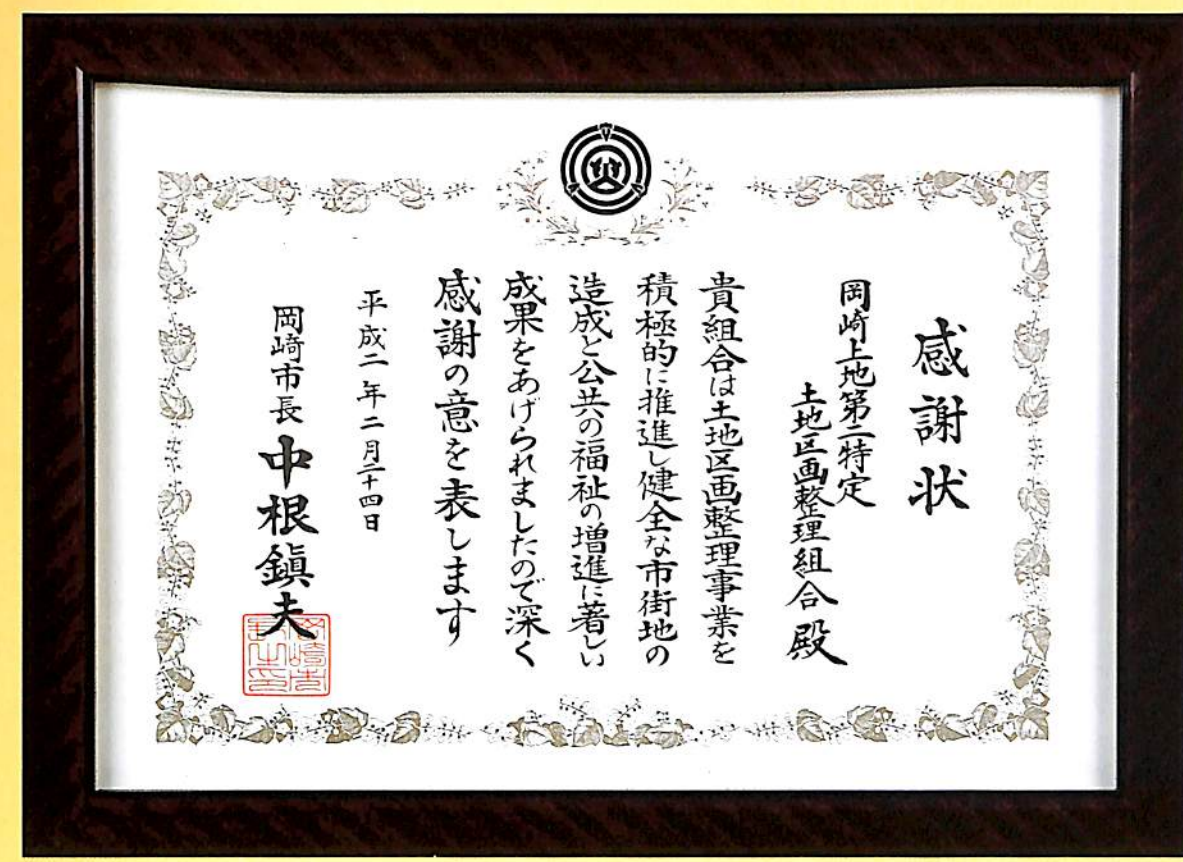 感謝状
岡崎上地第二特定
土地区画整理組合 殿
貴組合は土地区画整理事業を
積極的に推進し健全な市街地の
造成と公共の福祉の増進に著しい
成果をあげられましたので深く
感謝の意を表します
平成二年二月二十四日
岡崎市長 中根鎭夫
岡崎市長之印